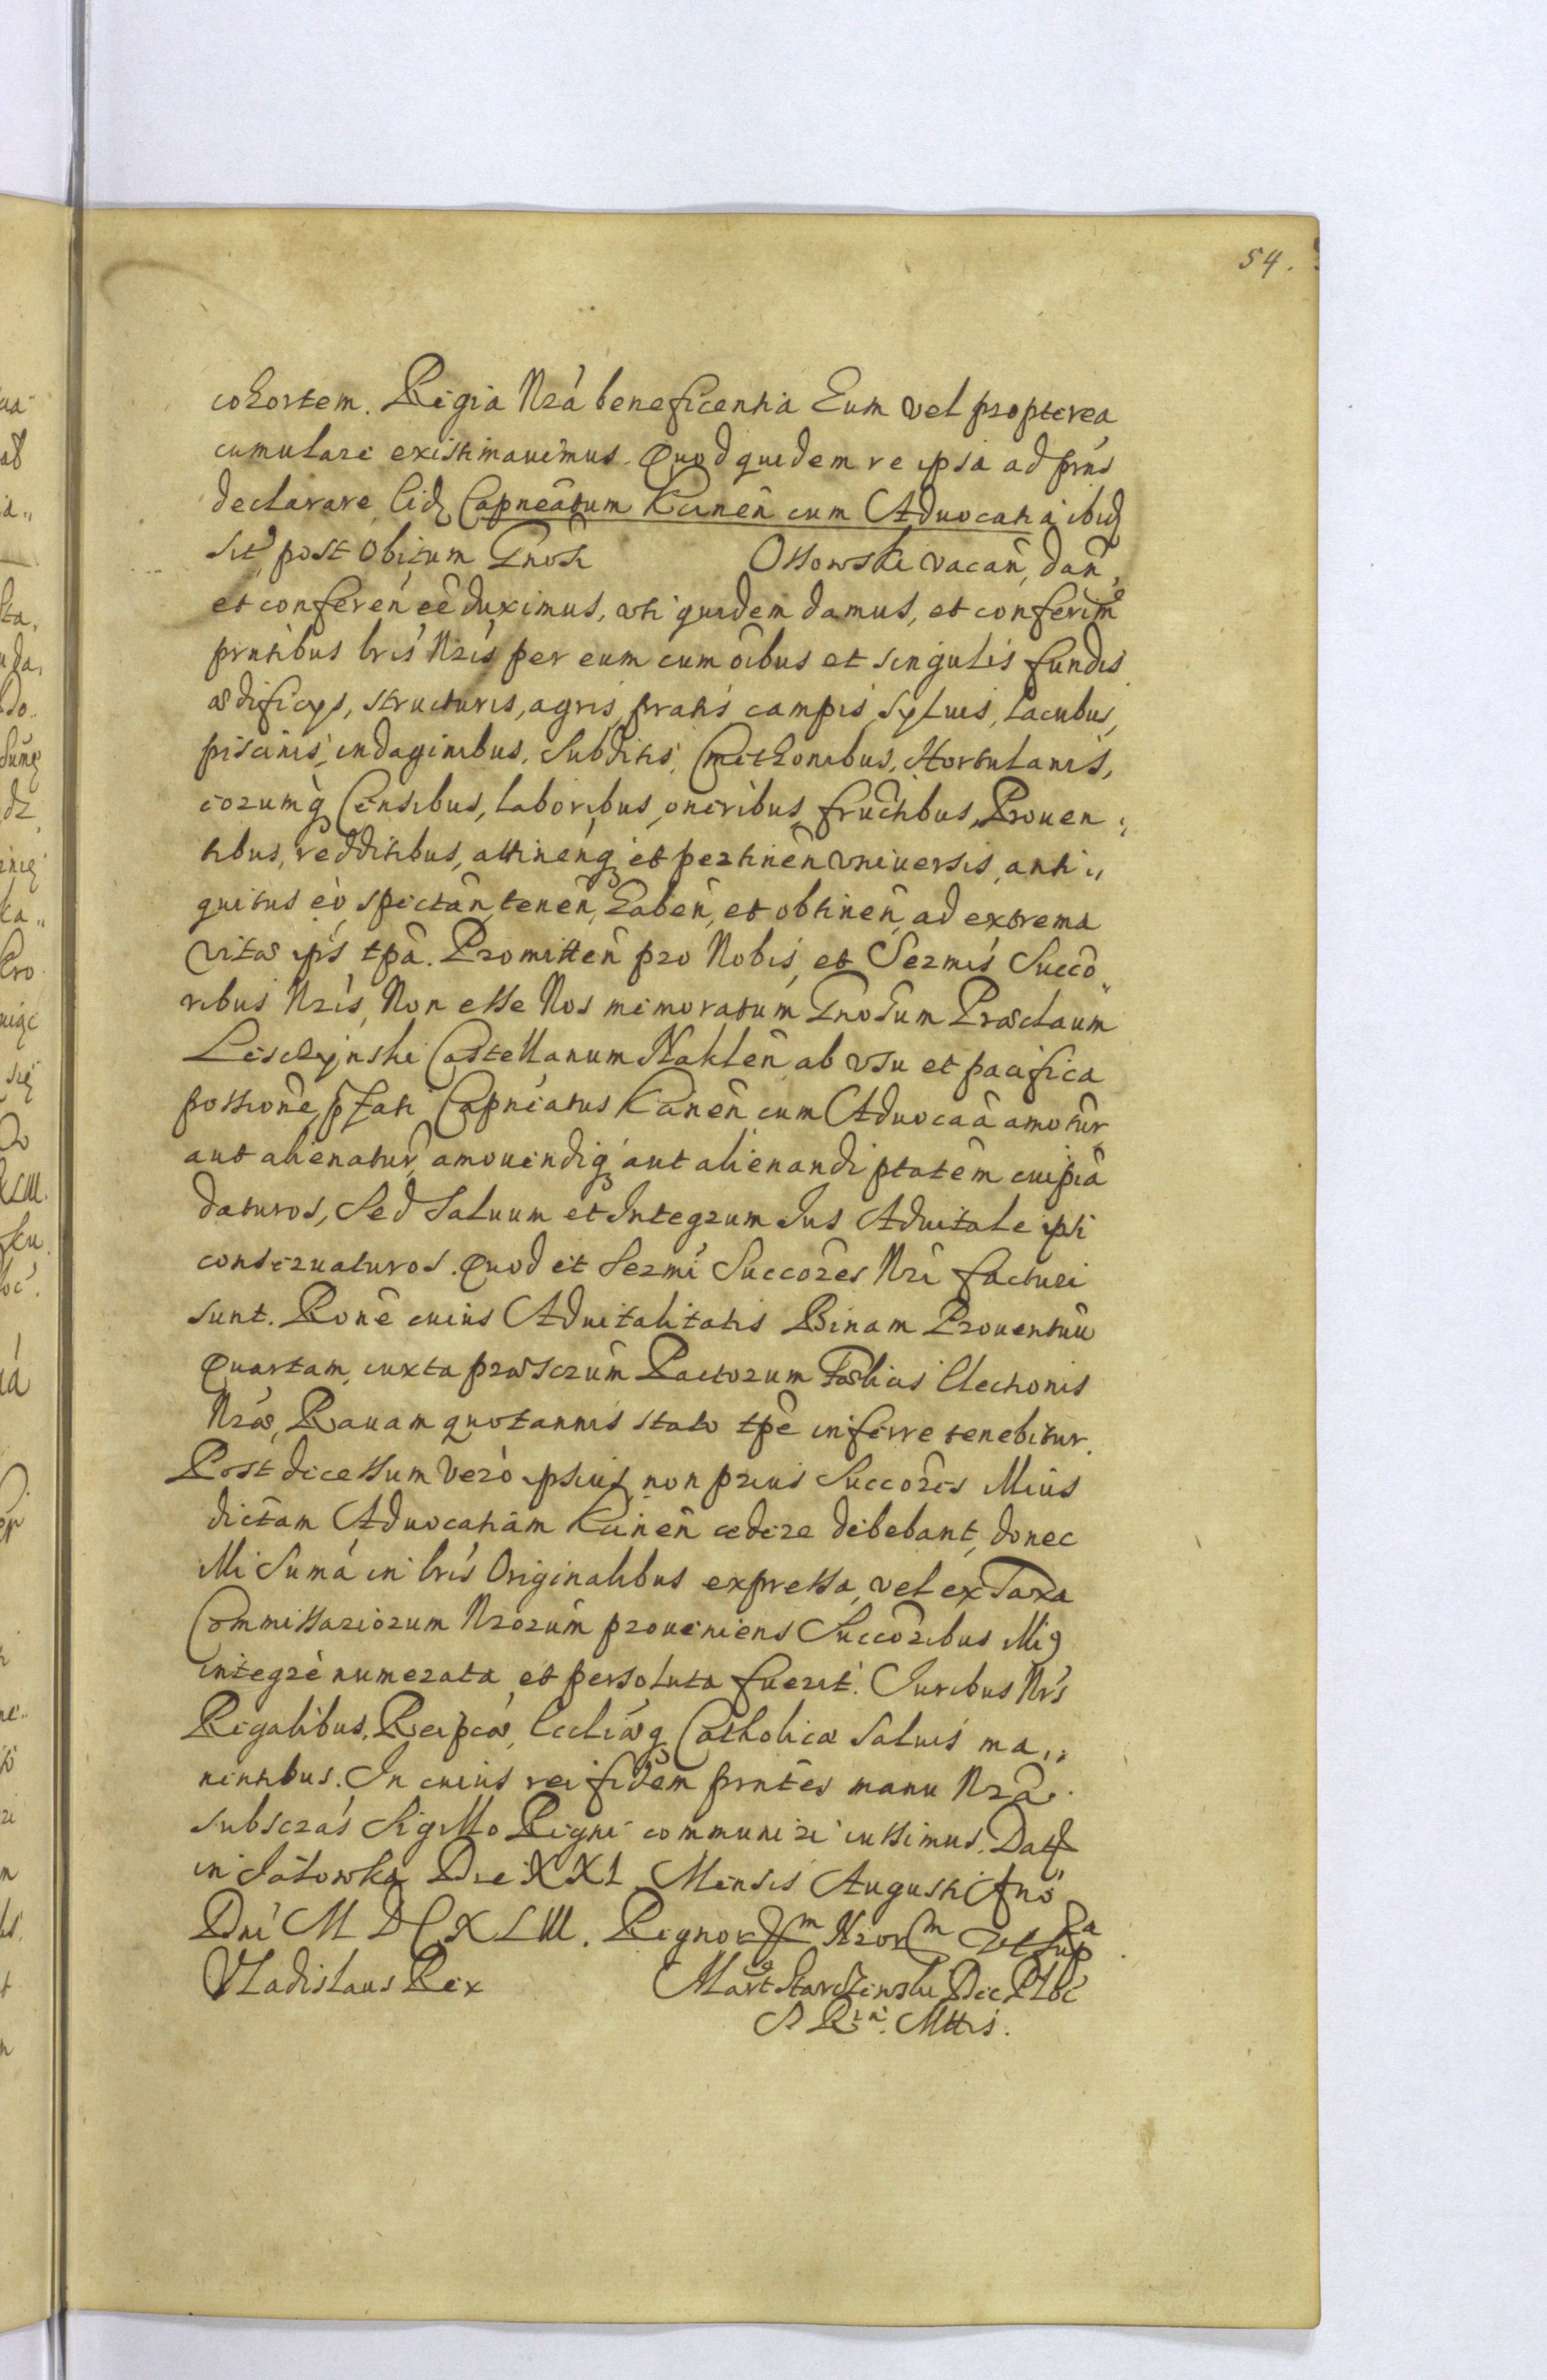 54.
cohortem. Regia Nrá beneficentia Eum vel propterea
cumulare existimauimus. Quod quidem re ipsa ad prns
declarare, Eidē Capneātum Kcinēn cum Aduocatia ibidē
sit, post obitum Gnosi Ossowski vacan̄, dan̄,
et conferēn eē duximus, vti quidem damus, et conferim9
prntibus lrīs Nrīs per eum cum oībus et singulis fundis
ædificijs, structuris, agris, pratis campis, syluis, lacubus,
piscinis, indaginibus, subditis, Cmethonibus, Hortulanis,
eorumq Censibus, laboribus, oneribus, fructibus, Prouen
tibus, redditibus, attinēnq et pertinēn vniuersis, anti
quitus eò spectān, tenēn, habēn, et obtinēn, ad extrema
vitæ ipīs tpā. Promittēn pro Nobis, et Sermīs Succō
ribus Nrīs, Non esse Nos memoratum Gnosum Præclaum
Lesczynski Castellanum Naklēn ab vsu et pacifica
possionē, pfati Capneātus Kcinēn cum Aduocaā amotūr
aut alienatūr, amouendiq aut alienandi ptatēm cuipiā
daturos, sed saluum et Integrum Ius Aduitale ipsi
conseruaturos. Quod et Sermī Succōres Nrī facturi
sunt. Ronē cuius Aduitalitatis Binam Prouentuū
Quartam, iuxta præscrūm Pactorum Fælicis Electionis
Nræ, Rauam quotannis stato tpē inferre tenebitur.
Post decessum verò ipsius, non prius Succōres Illius
dictam Aduocatiam Kcinēn cedere debebant, donec
Illi Suma in lrīs Originalibus expressa, vel ex Taxa
Commissariorum Nrorum proueniens Succōribus Illi9
integrè numerata, et persoluta fuerit. Iuribus Nrīs
Regalibus, Reipcæ, Eccliæq Catholicæ saluis ma
nentibus. In cuius rei fidem prntes manu Nrā
subscrās Sigillo Regni communiri iussimus. Dat
in Jałowka Die XXI Mensis Augusti Anō
Dnī M D C X L III. Regnorum Nrorum vt supra
Vladislaus Rex Mart Starczewski Dec Ploc
S R M Mttis.